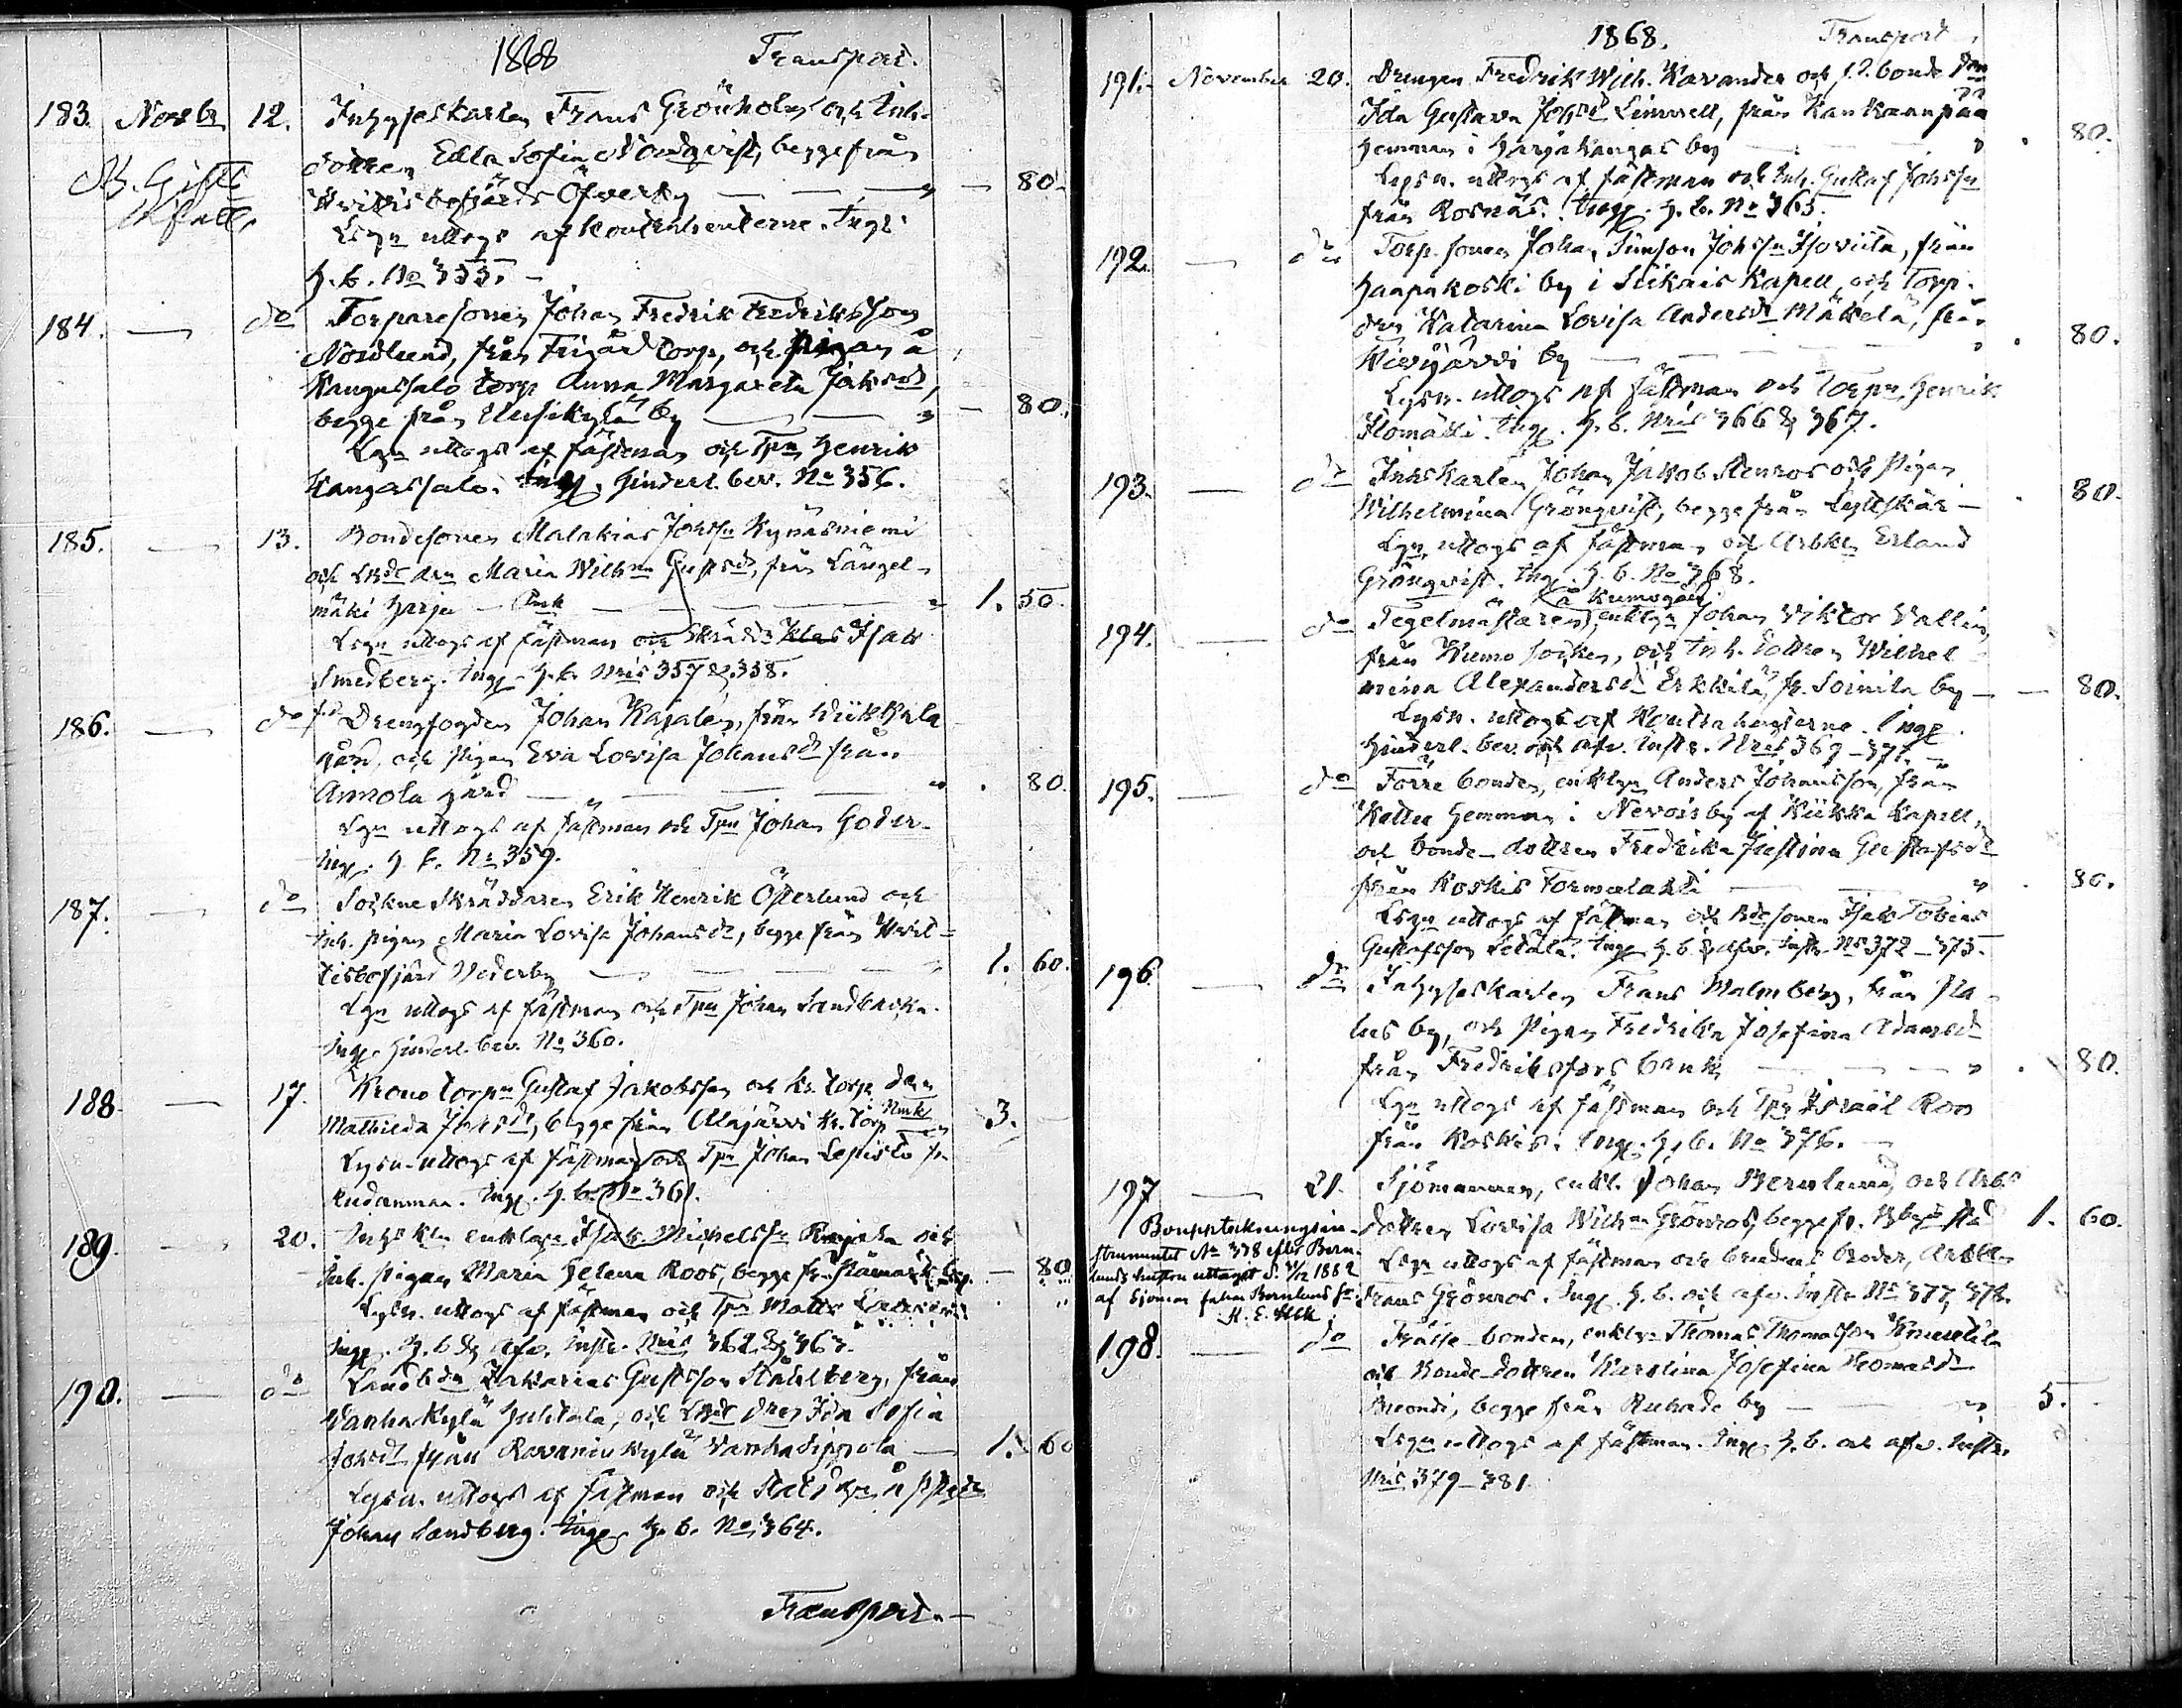 1868 Transport.
183. Novbr 12. Inhyseskarlen Frans Grönholm och Inh.
dottren Edla Sofia Nordqvist, begge från
Hvittisbofjärds Öfverby — — — " — 80.
Lysn uttogs af Kontrahenterne. Ingf.
H. b. No 355. —
184. — do Torparesonen Johan Fredrik Fredriksson
Nordlund, från torp, och pigan å
Kangassalo torp Anna Margareta Jaksdr,
begge från by — — " — 80.
Lysn uttogs af fästman och Tpn Henrik
Kangassalo. Ingf. Hinderl. bev. No 356.
185. — 13. Bondesonen Malakias Johsson Kynäsniemi
och drn Maria Wilhna Gustsdr, från Längel-
mäki Harju — — — " 1. 50.
Lysn uttogs af fästman och Isak
Smedberg. Ingf. H. b. Nris 357 & 358.
186. — do f.d. Drengfogden Johan Kajalén, från Wiikkala
gård, och Pigan Eva Lovisa Johansdr från
Annola gård — — — " . 80.
Lysn uttogs af fästman och Tpn Johan Goder.
Ingf. H. b. No 359.
187. — do Sockne Skräddaren Erik Henrik Österlund och
Inh. pigan Maria Lovisa Johansdr, begge från Hvit-
tisbofjärd Nederby — — — " 1. 60.
Lysn uttogs af fästman och Tpn Johan Sandbacka.
Ingf. Hinderl. bev. No 360.
188. — 17. Krono torpn Gustaf Jakobsson och Kr. torp. drn
Mathilda Johsdr, begge från Alajärvi Kr. torp 3.
Lysn. uttogs af fästman och Tpn Johan Lepistö fr.
Ingf. H. b. No 361.
189. — 20. Inhs kln enklingn Isak Michelsson och
Inh. pigan Maria Helena Roos, begge fr. Påmark by. — 80.
Lysn. uttogs af fästman och Tpn Matts
Ingf. H. b. & afv. Instr. Nris 362 & 363.
190. — do Landbdn Zakarias Gustsson Ståhlberg, från
Wanhakylä Juhtala, och drn Ida Sofia
Johsdr från Ravanin kylä Vanhasippola — 1. 60
Lysn. uttogs af fästman och
Johan Sandberg. Ingf. H. b. No 364.
Transport. —
1868. Transport
191. — November 20. Drengen Fredrik Wilh. Kavander och f.d. bonde drn
Ida Gustava Johsdr Linnvell, från Kankaanpää
Hemman i Harjakangas by — — — " . 80.
Lysn. uttogs af fästman och Inh. Gustaf Johsson
från Rosnäs. Ingf. H. b. No 365.
192. — do Torp. sonen Johan Simson Johsson Isoviita, från
Haapakoski by i Siikais Kapell, och Torp.
drn Katarina Lovisa Andersdr Mäkelä, från
by — — — " . 80.
Lysn. uttogs af fästman och Torpn Henrik
Ingf. H. b. Nris 366 & 367.
193. — do Inhs Karlen Johan Jakob Stenros och Pigan
Wilhelmina Grönqvist, begge från Lyttskär — . 80.
Lysn uttogs af fästman och Arbkn Erland
Grönqvist. Ingf. H. b. No 368.
å Kumogård
194. — do Tegelmästaren, enklgn Johan Viktor Vallin,
från Kumo socken, och Inh. dottren Wilhel-
mina Alexandersdr Erkkilä, fr. Soinila by — — 80.
Lysn. uttogs af Kontrahenterne. Ingf.
Hinderl. bev. och afv. Instr. Nris 369–371. —
195. — do Förre bonden, enklgn Anders Johansson, från
Hemman i by af Kiikka Kapell,
och bonde-dottren Fredrika Justina Gustafsdr
från Koskis Tormalahti — — " . 80.
Lysn uttogs af fästman och Bdesonen Isak Tobias
Gustafsson Letala. Ingf. H. b. & afv. Instr. No 372–375.
196. — do Inhyseskarlen Frans Malmberg, från Fla-
hus by, och Pigan Fredrika Josefina Adamsdr
från Fredriksfors bruk — — — " . 80.
Lysn uttogs af fästman och Tpn Israël Roos
från Koskis. Ingf. H. b. No 376. —
197. — 21. Sjömannen, enkl. Johan Bernlund, och Arb.
dottren Lovisa Wilhna Grönroos, begge fr. Bbgs stad 1. 60.
Lysn uttogs af fästman och brudens broder, Arbkn
Frans Grönroos. Ingf. H. b. och afv. Instr. No 377, 378.
Bouppteckningsin-
strumentet No 378 efter Bern-
lunds hustru uttaget d. 21/12 1882
af Sjöman Johan Bernlund fr
198. — do Frälse bonden, enklgn Thomas Thomasson Knuutila
och Bonde-dottren Karolina Josefina Thomasdr
begge från Ruhade by — — " 5.
Lysn uttogs af fästman. Ingf. H. b. och afv. Instr.
Nris 379–381.